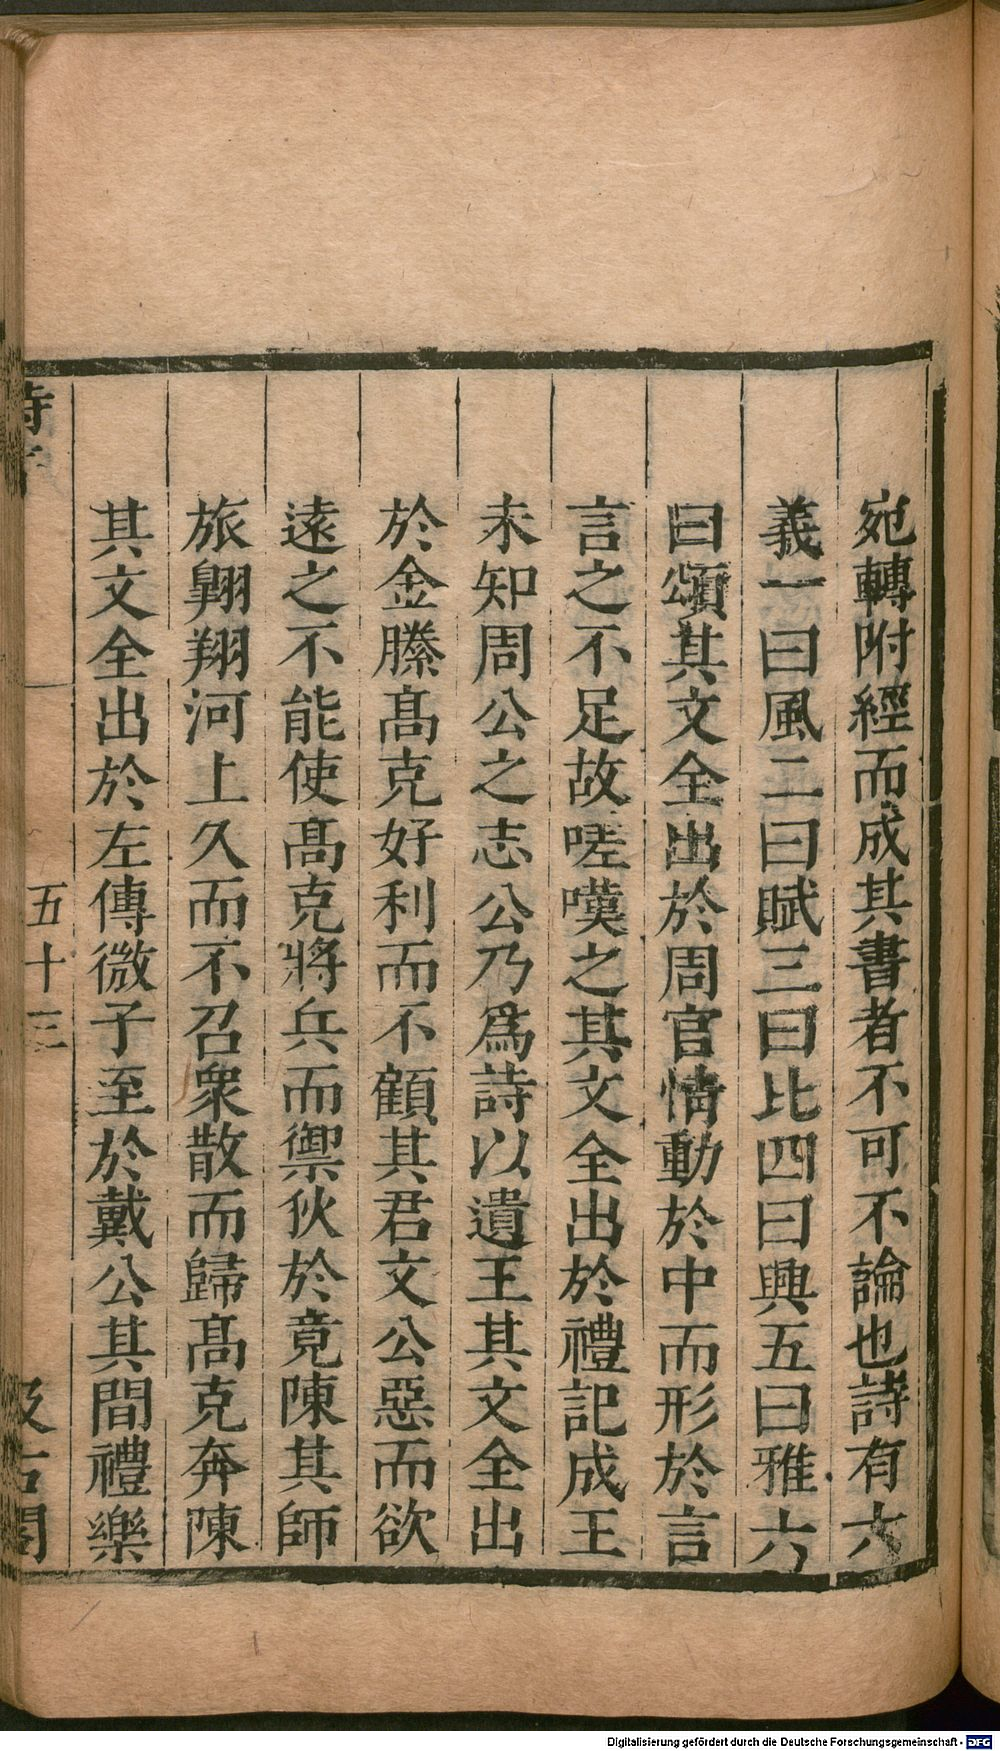 宛轉附經而成其書者不可不論也詩有六
義一曰風二曰賦三曰比四曰興五曰雅六
曰頌其文全出於周官情動於中而形於言
言之不足故嗟嘆之其文全出於禮記成王
未知周公之志公乃爲詩以遺王其文全出
於金縢髙克好利而不顧其君文公惡而欲
遠之不能使髙克將兵而禦狄於竟陳其師
旅翺翔河上久而不召衆散而歸髙克奔陳
其文全出於左傳微子至於戴公其間禮樂
五十三
Digitalisierung gefördert durch die Deutsche Forschungsgemeinschaft - DFG